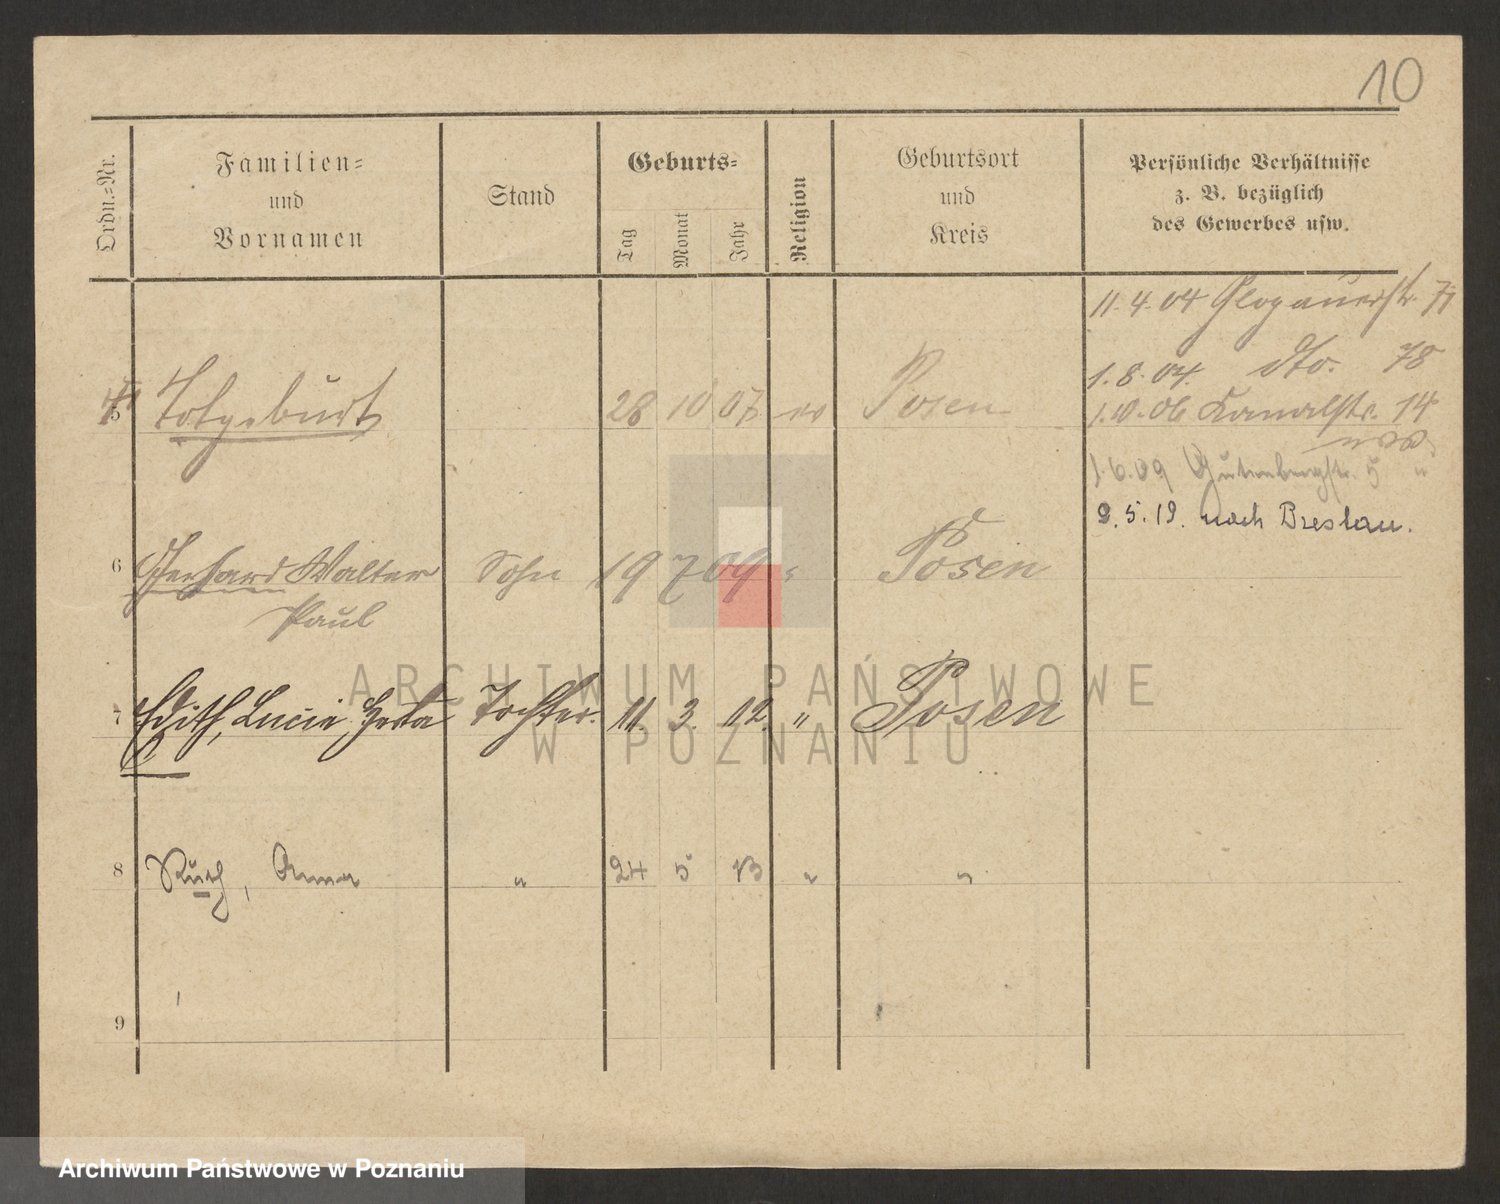 10
Ordn.-Nr.
Familien-
und
Vornamen
Stand
Geburts-
Tag
Monat
Jahr
Religion
Geburtsort
und
Kreis
Persönliche Verhältnisse
z. B. bezüglich
des Gewerbes usw.
11. 4. 04 Glogauerstr.
1. 8. 04. dto. 78
5 Totgeburt 28 10 07 Posen
1. 10. 06 Kanalstr. 14
1. 6. 09 Gutenbergstr. 5 "
9. 5. 19. nach Breslau.
6 Gerhard Walter Sohn 19 7 09 " Posen
Paul
7 Edith, Lucie, Herta Tochter. 11. 3. 12. " Posen
8 Ruth, Anna " 24 5 13 " "
9
ARCHIWUM PAŃSTWOWE
W POZNANIU
Archiwum Państwowe w Poznaniu